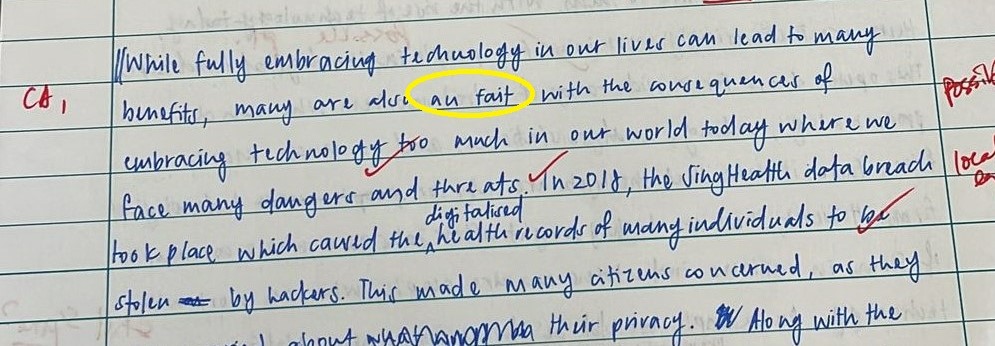 //While fully embracing technology in our lives can lead to many
CA1 benefits, many are also au fait with the consequences of
embracing technology too much in our world today where we
face many dangers and threats. In 2018, the SingHealth data breach
digitalised
took place which caused the ^ health records of many individuals to be
stolen by hackers. This made many citizens concerned, as they
about their privacy. Along with the